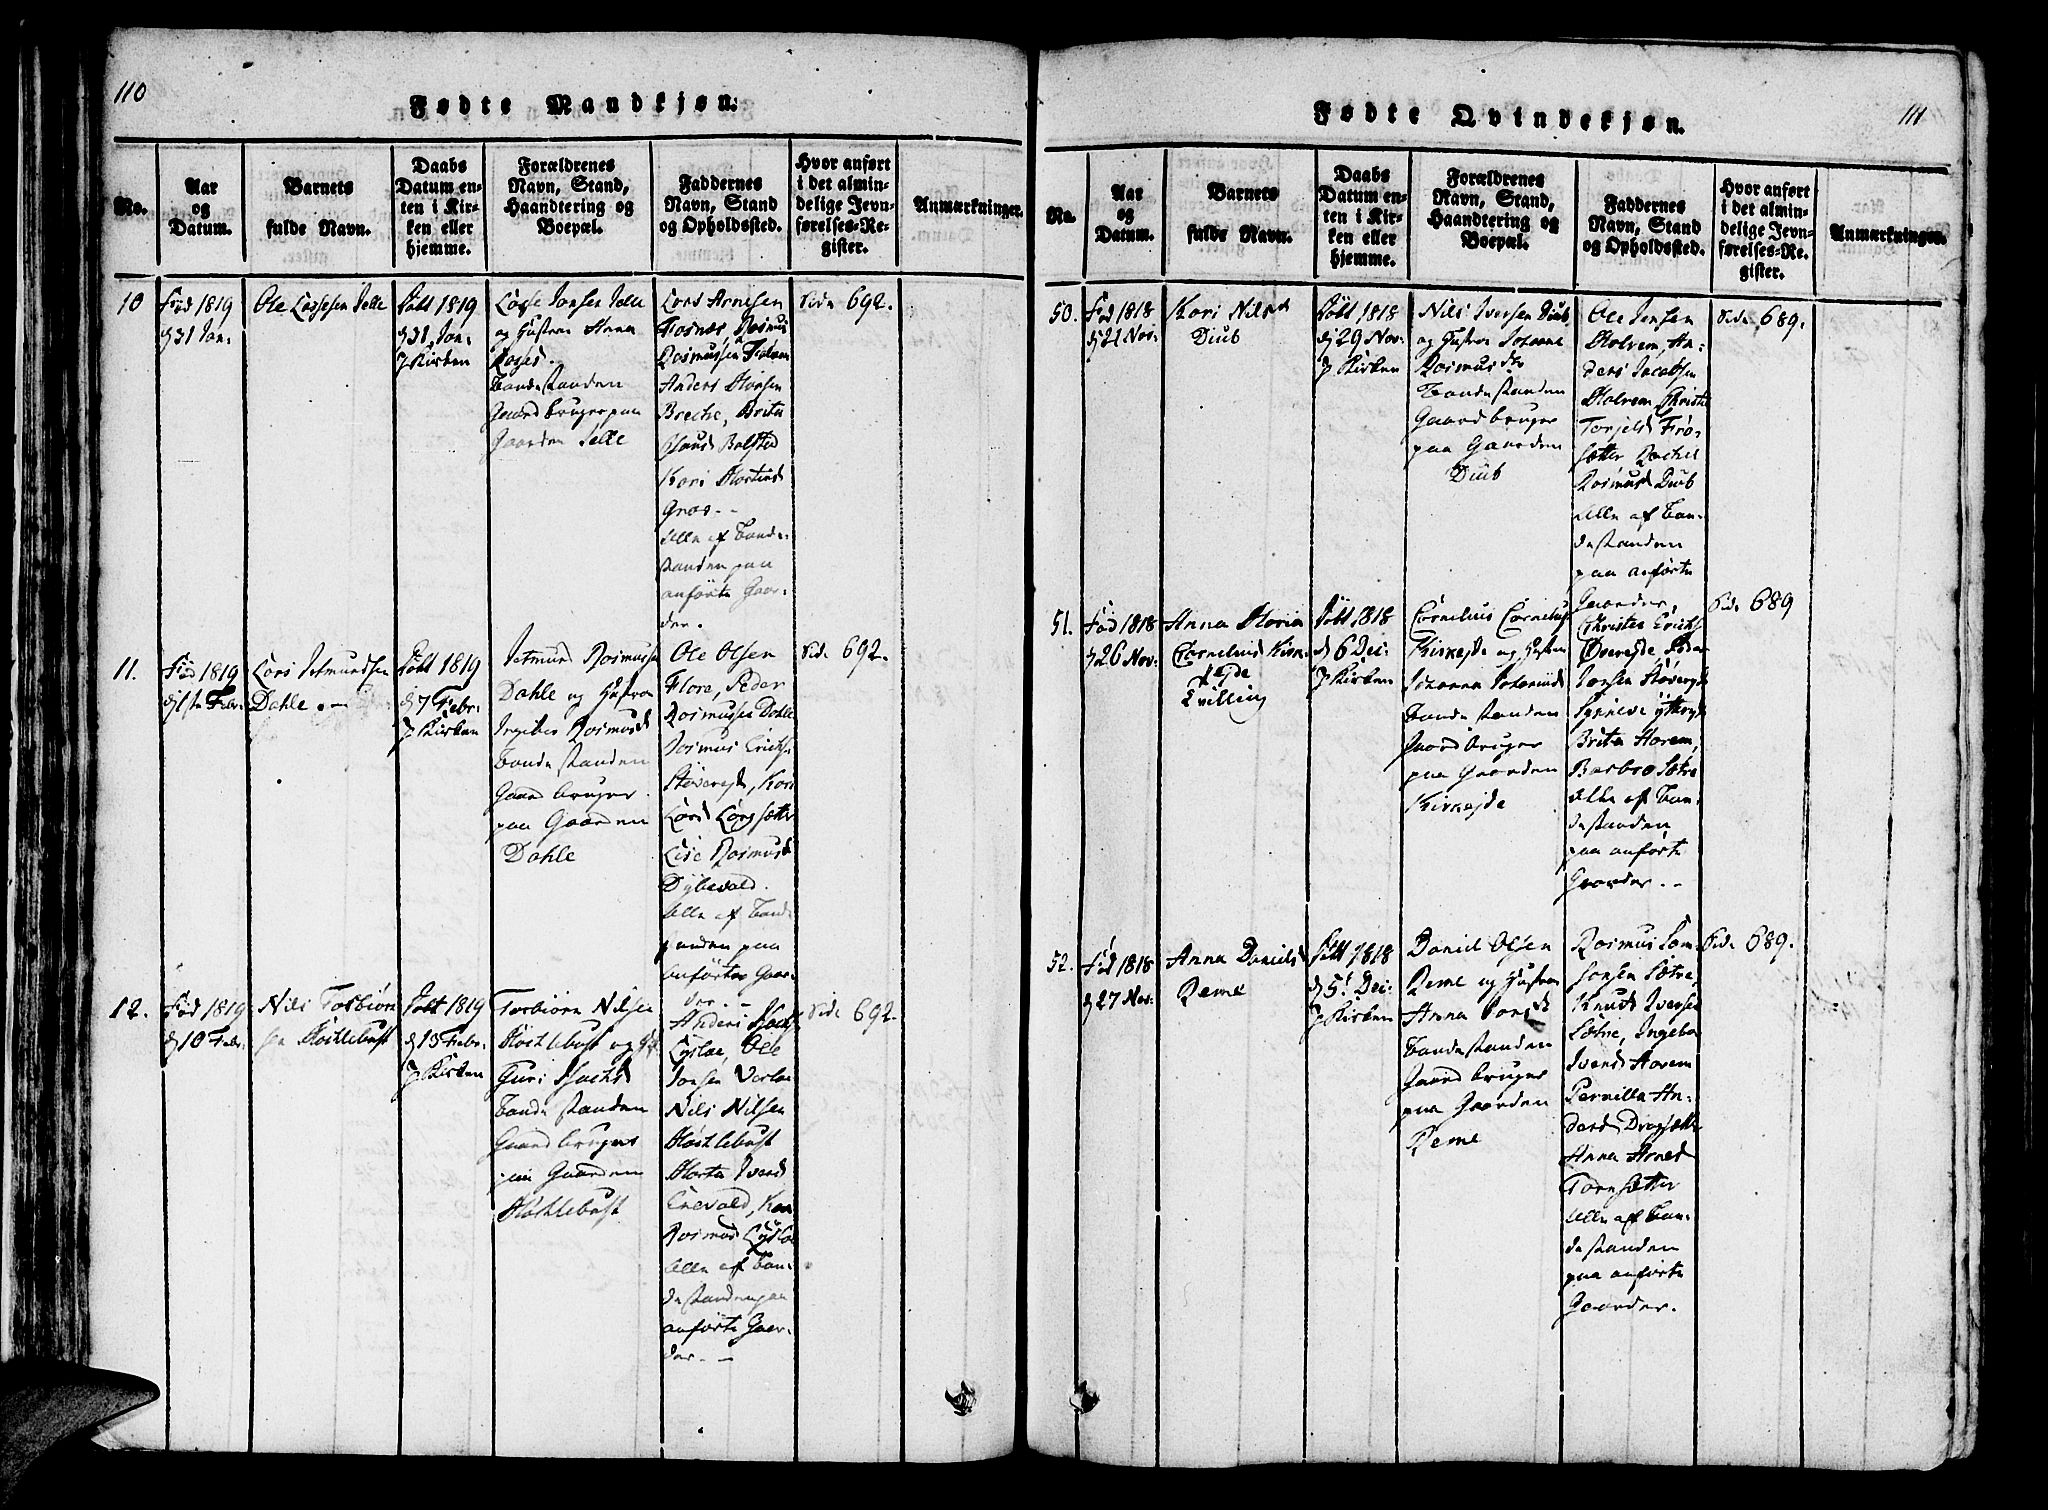 110
Fødte Mandkjøn.
No.
Aar
og
Datum.
Barnets
fulde Navn.
Daabs
Datum en-
ten i Kir-
ken eller
hjemme.
Forældrenes
Navn, Stand,
Haandtering og
Boepæl.
Faddernes
Navn, Stand
og Opholdssted.
Hvor anført
i det almin-
delige Jevn-
førelses-Re-
gister.
Anmærkninger.
10
Fød 1819
d 31 Jan:
Ole Lassesen Selle
Døbt 1819
d 31 Jan:
J Kirken
Lasse Jonsen Selle
og Hustrue Anna
Bondestanden
Gaardbruger paa
Gaarden Selle
Lars Arnesen
Rasmus
Rasmussen
Anders
Brecke, Brita
Bolsted
Kari
Alle af Bonde-
standen paa
anførte Gaar-
der.
Side 692.
11.
Fød 1819
d 1ste Febr:
Lars Jetmundsen
Dahle.
Døbt 1819
d 7 Febr:
J Kirken
Jetmund Rasmuss
Dahle og Hustrue
Rasmusd
Bondestanden
Gaardbruger
paa Gaarden
Dahle
Ole Olsen
Flore, Peder
Rasmussen Dahle
Rasmus Ericks
Støveregd, Kari
Larsd
Lise Rasmusd
Dybevold.
Alle af Bond-
standen paa
anførte Gaar-
der.
Side 692.
12.
Fød 1819
d 10 Febr:
Nils Torbiørn
sen Hochlebust
Døbt 1819
d 13 Febr:
J Kirken
Torbiørn Nilsen
Hochlebust og H
Guri
Bondestanden
Gaardbruger
paa Gaarden
Hochlebust
Anders
Ole
Jonsen
Nils Nilsen
Hochlebust
Marta Iversd
Enevold, Kari
Rasmusd
Alle af Bon-
destanden paa
anførte Gaar-
der.
Side 692.
111
Fødte Qvindekjøn.
No.
Aar
og
Datum.
Barnets
fulde Navn.
Daabs
Datum en-
ten i Kir-
ken eller
hjemme.
Forældrenes
Navn, Stand,
Haandtering og
Boepæl.
Faddernes
Navn, Stand
og Opholdssted.
Hvor anført
i det almin-
delige Jevn-
førelses-Re-
gister.
Anmærkninger.
50.
Fød 1818
d 21 Nov:
Kari Nilsd
Diub
Døbt 1818
d 29 Nov:
J Kirken
Nils Iversen Diub
og Hustrue Johanne
Rasmusdtr
Bondestanden
Gaardbruger
paa Gaarden
Diub
Ole Jensen
An-
ders Jacobsen
Torjelsd Frø-
sætter Rachel
Rasmusd Diub
Alle af Bon-
destanden
paa anførte
Gaarder.
Side 689.
51.
Fød 1818
d 26 Nov:
Anna Maria
Cornelius Kirk-
ejde
Tvilling
Døbt 1818
d 6 Dec:
J Kirken
Cornelius Cornelius
Kirkejde og Hustrue
Johanna
Bondestanden
Gaardbruger
paa Gaarden
Kirkejde
Christen Ericks
Øverejde Peder
Jonsen
Synneve
Brita Horem,
Barbro Sætre
Alle af Bon-
destanden
paa anførte
Gaarder.
Side 689
52.
Fød 1818
d 27 Nov:
Anna Danielsd
Reme
Døbt 1818
d 5t Dec:
J Kirken
Daniel Olsen
Reme og Hustrue
Anna
Bondestanden
Gaardbruger
paa Gaarden
Reme
Rasmus Lam-
Sætre,
Knud Iversen
Sætre, Ingebor
Iversd Horem
Pernilla An-
dersd Dragsætter
Anna Arnesd
Tornsætter
Alle af Bon-
destanden
paa anførte
Gaarder.
Side 689.